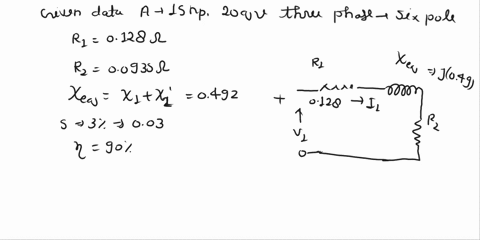 Given data A → 15 hp. 200v three phase → six pole
R1 = 0.128 Ω
R2 = 0.0935 Ω
Xeq = X1 + X2' = 0.492
s → 3% → 0.03
η = 90%
R1
Xeq ⇒ j(0.49)
+
0.128 → I1
V1
R2